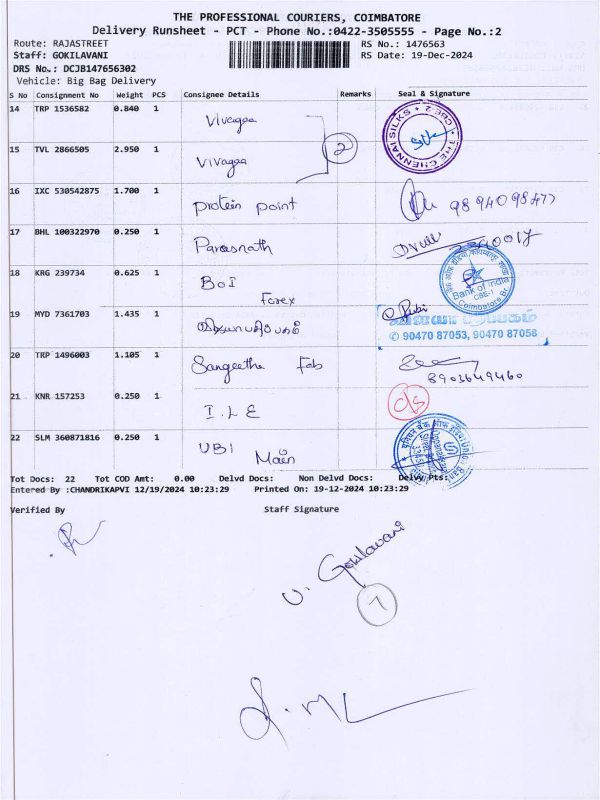 THE PROFESSIONAL COURIERS, COIMBATORE
Delivery Runsheet - PCT - Phone No.:0422-3505555 - Page No.:2
Route: RAJASTREET RS No.: 1476563
Staff: GOKILAVANI RS Date: 19-Dec-2024
DRS No.: DCJB147656302
Vehicle: Big Bag Delivery
S No Consignment No Weight PCS Consignee Details Remarks Seal & Signature
14 TRP 1536582 0.840 1 Vivagaa THE CHENNAI SILKS + CBE-2 +
15 TVL 2866505 2.950 1 Vivagaa 2
16 IXC 530542875 1.700 1 protein point 9894098477
17 BHL 100322970 0.250 1 Parasnath
18 KRG 239734 0.625 1 BOI
Forex Bank of India CBE-1 Coimbatore Br.
19 MYD 7361703 1.435 1
✆ 90470 87053, 90470 87058
20 TRP 1496003 1.105 1 Sangeetha Fab 8903649460
21 KNR 157253 0.250 1 I.L.E
22 SLM 360871816 0.250 1 UBI
Main
Tot Docs: 22 Tot COD Amt: 0.00 Delvd Docs: Non Delvd Docs: Delvy Pts:
Entered By :CHANDRIKAPVI 12/19/2024 10:23:29 Printed On: 19-12-2024 10:23:29
Verified By Staff Signature
V. Gokilavani
7